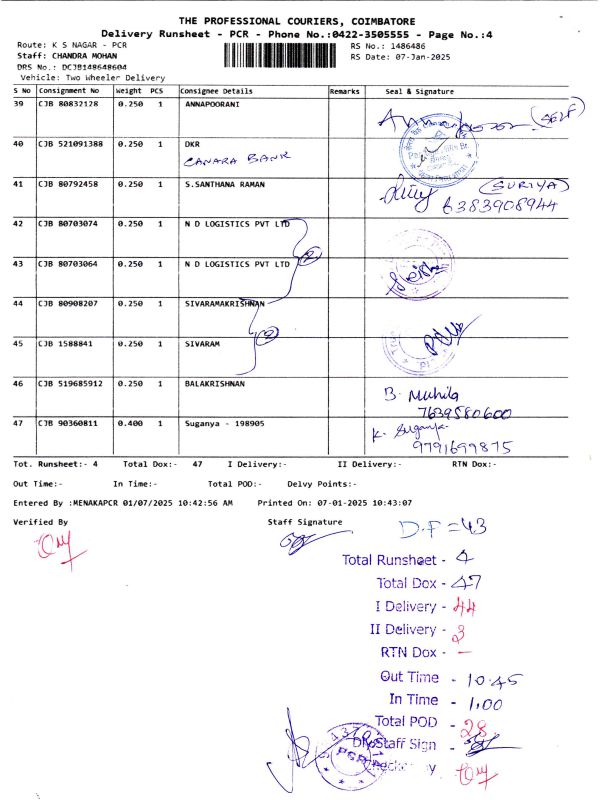 THE PROFESSIONAL COURIERS, COIMBATORE
Delivery Runsheet - PCR - Phone No.:0422-3505555 - Page No.:4
Route: K S NAGAR - PCR
RS No.: 1486486
Staff: CHANDRA MOHAN
RS Date: 07-Jan-2025
DRS No.: DCJB148648604
Vehicle: Two Wheeler Delivery
S No Consignment No Weight PCS Consignee Details Remarks Seal & Signature
39 CJB 80832128 0.250 1 ANNAPOORANI
(SELF)
40 CJB 521091388 0.250 1 DKR
CANARA BANK
41 CJB 80792458 0.250 1 S.SANTHANA RAMAN
(SURIYA)
6383908944
42 CJB 80703074 0.250 1 N D LOGISTICS PVT LTD
2
43 CJB 80703064 0.250 1 N D LOGISTICS PVT LTD
44 CJB 80908207 0.250 1 SIVARAMAKRISHNAN
2
45 CJB 1588841 0.250 1 SIVARAM
46 CJB 519685912 0.250 1 BALAKRISHNAN
B. Muhila
7639580600
47 CJB 90360811 0.400 1 Suganya - 198905
K. Suganya
9791699875
Tot. Runsheet:- 4 Total Dox:- 47 I Delivery:- II Delivery:- RTN Dox:-
Out Time:- In Time:- Total POD:- Delvy Points:-
Entered By :MENAKAPCR 01/07/2025 10:42:56 AM Printed On: 07-01-2025 10:43:07
Verified By
Staff Signature
D.F = 43
Total Runsheet - 4
Total Dox - 47
I Delivery - 44
II Delivery - 3
RTN Dox - —
Out Time - 10.45
In Time - 1.00
Total POD - 28
Staff Sign -
PCR